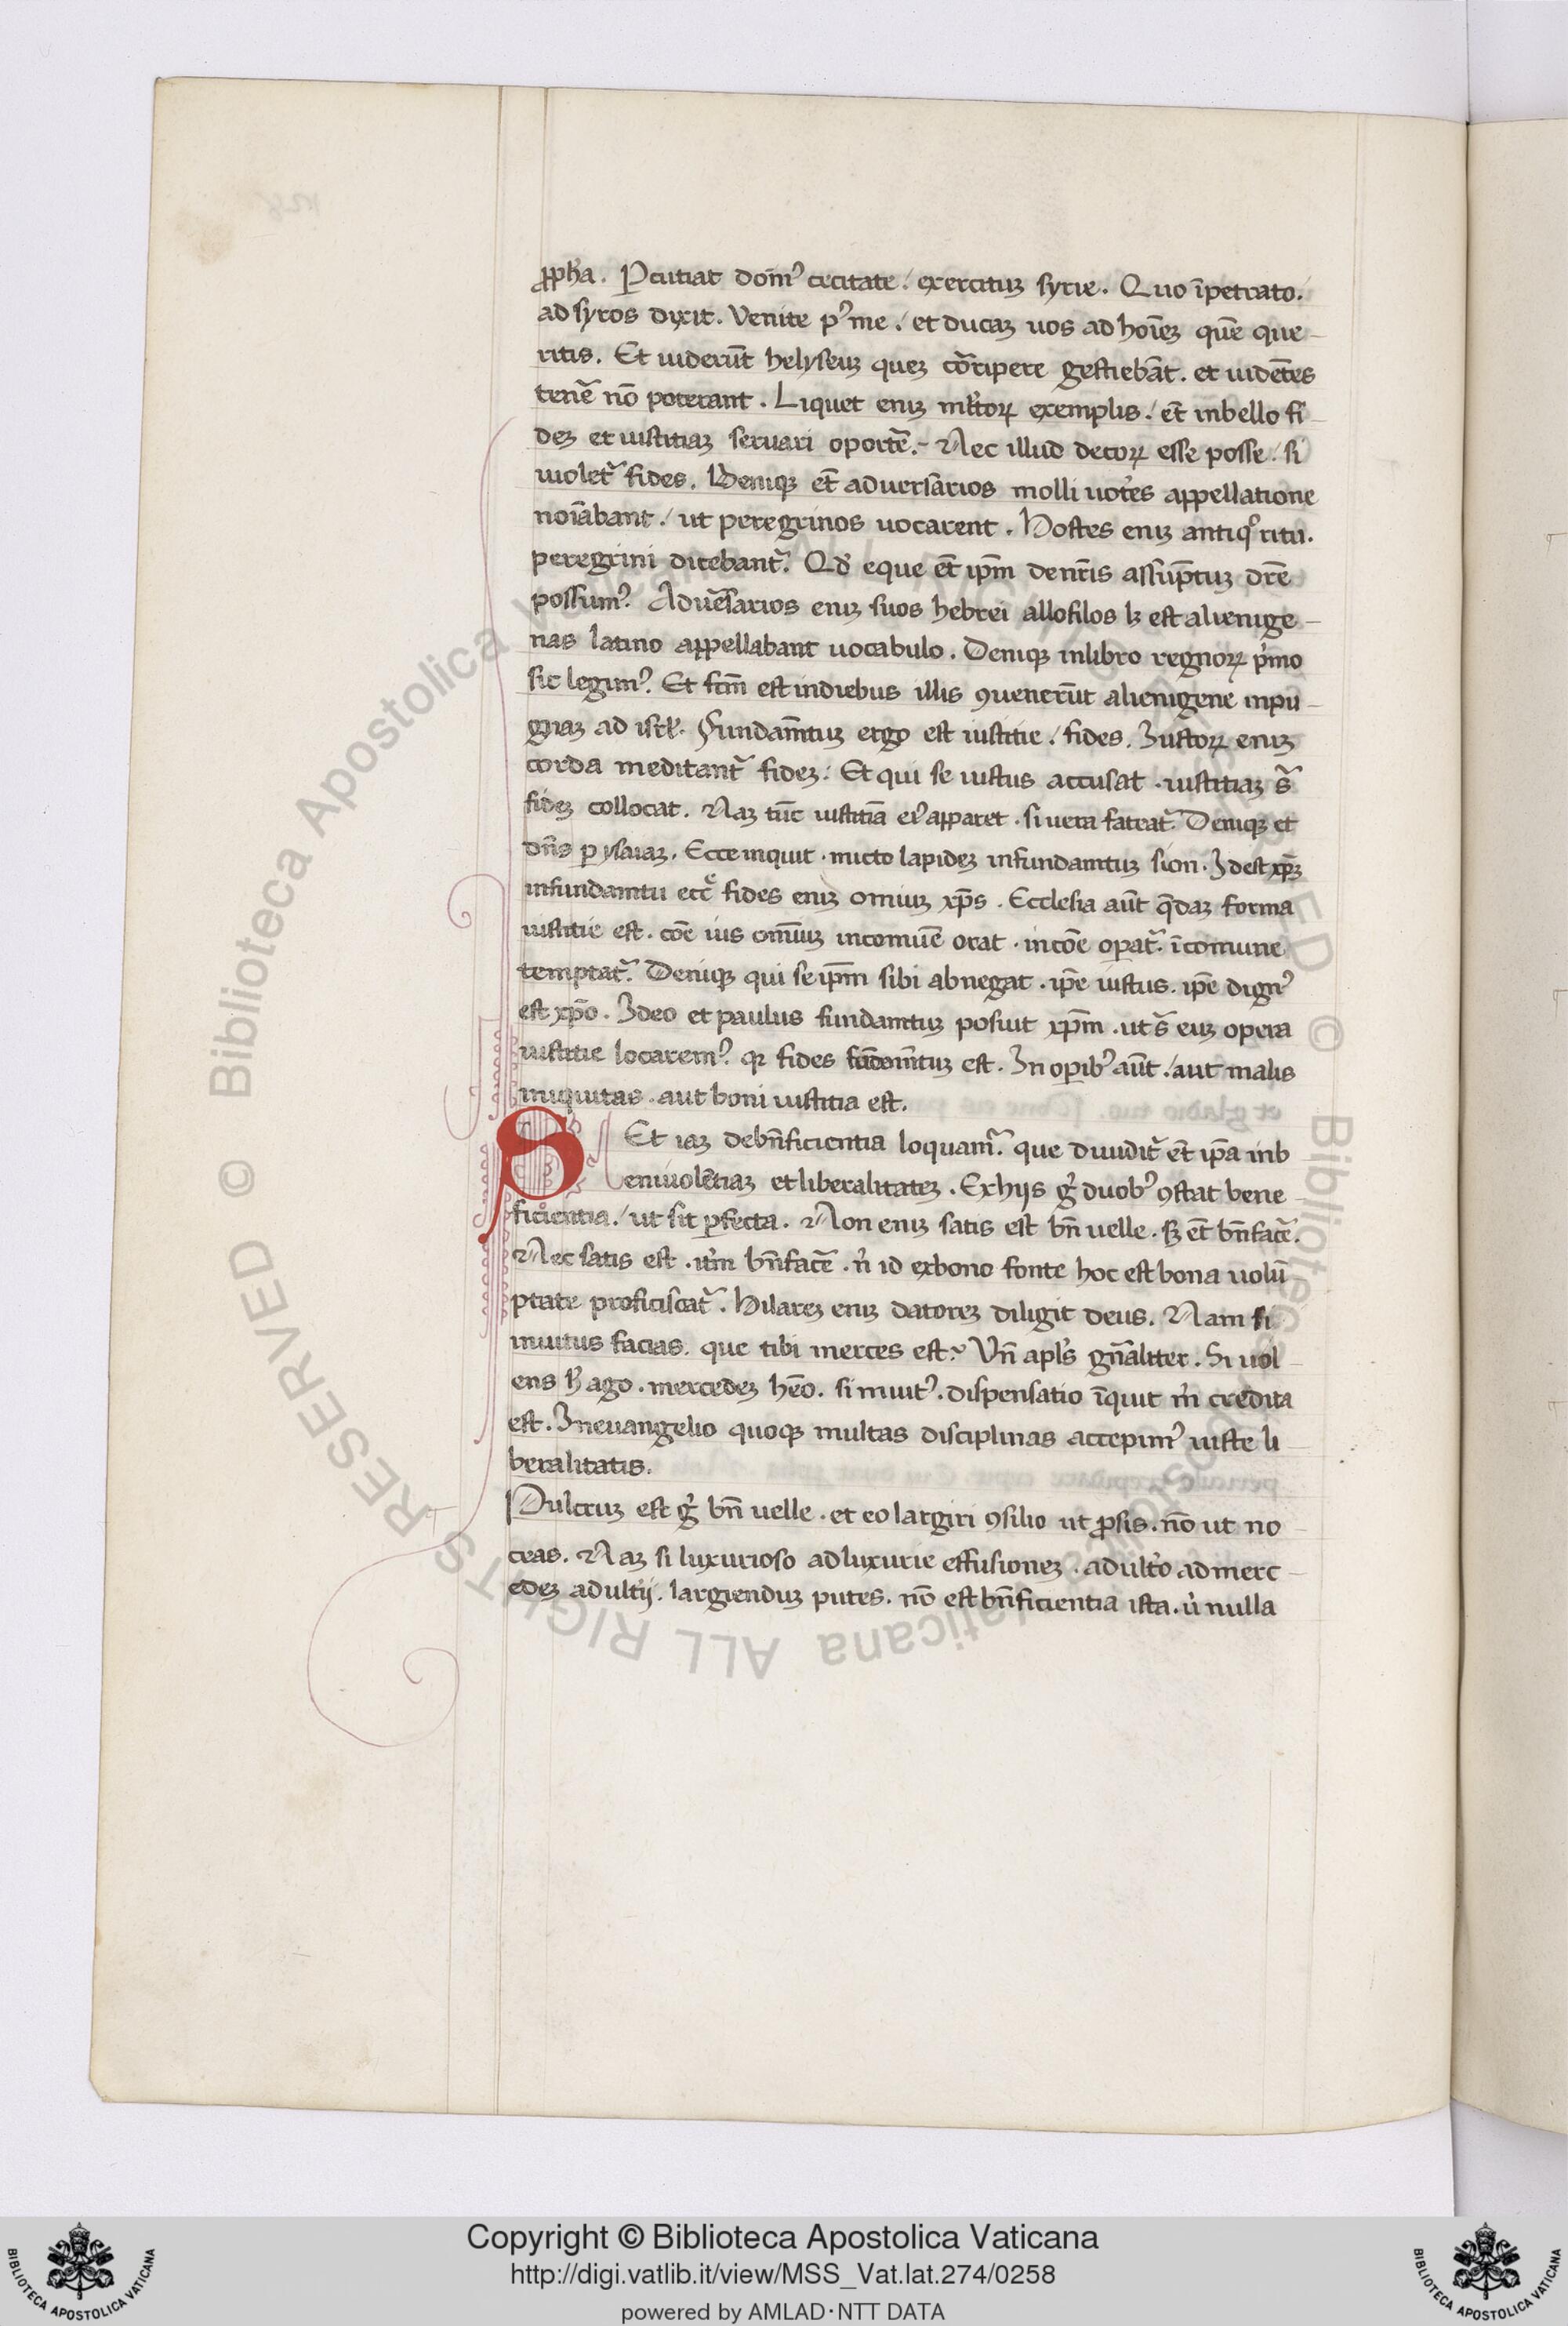 ꝓph̄a. Ꝑcutiat domꝰ cecitate / exercituꝫ syrie. Quo īpetrato /
ad syros dixit. Venite pꝰ me / et ducaꝫ uos ad hoīeꝫ quē que-
ritis. Et uiderūt helyseuꝫ queꝫ cōripere gestiebāt. et uidētes
tenē nō poterant. Liquet eniꝫ exemplis / et̄ inbello fi-
deꝫ et iustitiaꝫ seruari oportē. Nec illud decoꝝ esse posse / si
uiolet᷑ fides. Deniqꝫ et̄ aduersārios molli appellatione
noīabant / ut peregrinos uocarent. Hostes eniꝫ antiqͦ ritu.
peregrini dicebant᷑. Qd̄ eque et̄ ip̄m denr̄is assūptuꝫ dr̄e
possumꝰ. Aduēsarios eniꝫ suos hebrei allofilos est alienige-
nas latino appellabant uocabulo. Deniqꝫ inlibro regnoꝝ pͥmo
sic legimꝰ. Et fc̄m est indiebus illis ꝯuenerūt alienigene inpu-
gnaꝫ ad isrl̄. Fundam̄tuꝫ ergo est iustitie / fides. Iustoꝝ eniꝫ
corda meditant᷑ fideꝫ. Et qui se iustus accusat . iustitiaꝫ s᷑
fideꝫ collocat. Naꝫ tūc iustitiā eiꝰ apparet . si uera fateat᷑. Deniqꝫ et
dn̄s ꝑ ysaiaꝫ. Ecce inquit . micto lapideꝫ infundamtuꝫ sion. Idest xp̄ꝫ
infundamtu ecc̄ fides eniꝫ omniuꝫ xp̄s. Ecclesia aūt q̄daꝫ forma
iustitie est. coē ius om̄iuꝫ incomuē orat . incoē oꝑat᷑. īcomune
temptat᷑. Deniqꝫ qui seip̄m sibi abnegat . ip̄e iustus. ip̄e dignꝰ
est xp̄o. Ideo et paulus fundamtuꝫ posuit xp̄m . ut s᷑ euꝫ opera
iustitie locaremꝰ. qꝛ fides est. In oꝑibꝰ aūt / aut malis
iniquitas . aut boni iustitia est.
SEt iaꝫ debn̄ficientia loquam᷑. que diuidit᷑ et̄ ip̄a inb
eniuolētiaꝫ et liberalitateꝫ. Exhijs gͥ duobꝰ ꝯstat bene-
ficientia / ut sit ꝑfecta. Non eniꝫ satis est bn̄ uelle. sꝫ et̄ bn̄facē.
Nec satis est . it̄m bn̄facē . nͥ id exbono fonte hoc est bona uolū
ptate proficiscat᷑. Hilareꝫ eniꝫ datoreꝫ diligit deus. Nam si
inuitus facias. que tibi merces est? Vn̄ apl̄s gn̄aliter. Si uol-
ens h̄ ago . mercedeꝫ hēo. si inuitꝰ. dispensatio īquit m̄ credita
est. Ineuangelio quoqꝫ multas disciplinas accepimꝰ iuste li-
beralitatis.
Pulcruꝫ est gͥ bn̄ uelle . et eo largiri ꝯsilio ut ꝓsis. nō ut no-
ceas. Naꝫ si luxurioso adluxurie effusioneꝫ . adult̄o admerc-
edeꝫ adult̄ij. largienduꝫ putes. nō est bn̄ficientia ista. uͥ nulla
Copyright © Biblioteca Apostolica Vaticana
http://digi.vatlib.it/view/MSS_Vat.lat.274/0258
powered by AMLAD·NTT DATA
BIBLIOTECA APOSTOLICA VATICANA
BIBLIOTECA APOSTOLICA VATICANA